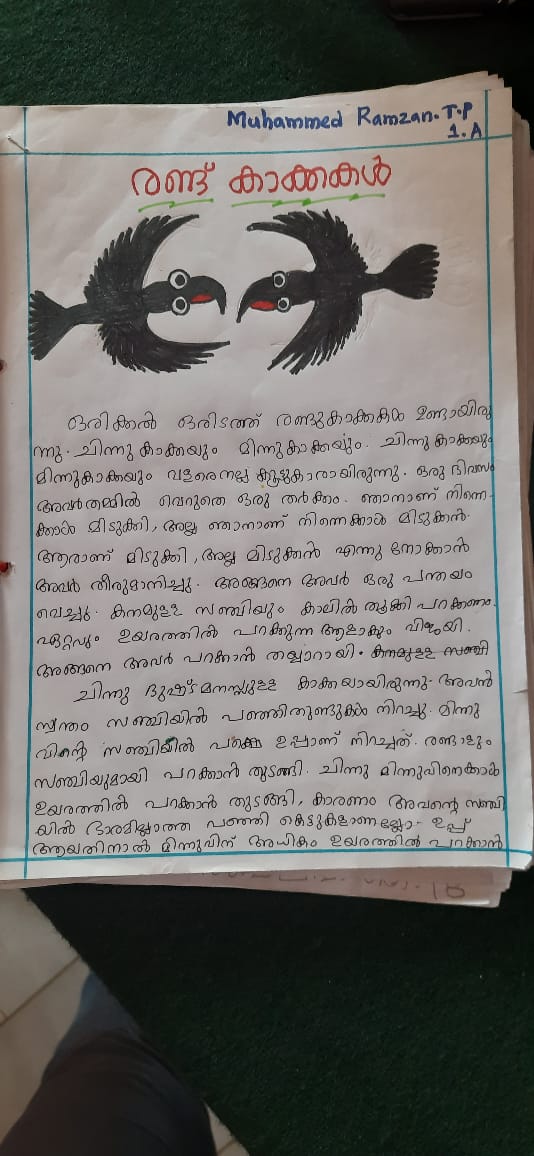 Muhammed Ramzan.T.P
1.A
രണ്ട് കാക്കകൾ
ഒരിക്കൽ ഒരിടത്ത് രണ്ടുകാക്കകൾ ഉണ്ടായിരു
ന്നു. ചിന്നുകാക്കയും മിന്നുകാക്കയും. ചിന്നുകാക്കയും
മിന്നുകാക്കയും വളരെനല്ല കൂട്ടുകാരായിരുന്നു. ഒരു ദിവസം
അവർതമ്മിൽ വെറുതെ ഒരു തർക്കം. ഞാനാണ് നിന്നെ-
ക്കാൾ മിടുക്കി, അല്ല ഞാനാണ് നിന്നെക്കാൾ മിടുക്കൻ.
ആരാണ് മിടുക്കി, അല്ല മിടുക്കൻ എന്നു നോക്കാൻ
അവർ തീരുമാനിച്ചു. അങ്ങനെ അവർ ഒരു പന്തയം
വെച്ചു. കനമുള്ള സഞ്ചിയും കാലിൽ തൂക്കി പറക്കണം.
ഏറ്റവും ഉയരത്തിൽ പറക്കുന്ന ആളാകും വിജയി.
അങ്ങനെ അവർ പറക്കാൻ തയ്യാറായി. കനമുള്ള സഞ്ചി
ചിന്നു ദുഷ്ടമനസ്സുള്ള കാക്കയായിരുന്നു. അവൻ
സ്വന്തം സഞ്ചിയിൽ പഞ്ഞിതുണ്ടുകൾ നിറച്ചു. മിന്നു
വിന്റെ സഞ്ചിയിൽ പക്ഷെ ഉപ്പാണ് നിറച്ചത്. രണ്ടാളും
സഞ്ചിയുമായി പറക്കാൻ തുടങ്ങി. ചിന്നു മിന്നുവിനെക്കാൾ
ഉയരത്തിൽ പറക്കാൻ തുടങ്ങി, കാരണം അവന്റെ സഞ്ചി
യിൽ ഭാരമില്ലാത്ത പഞ്ഞി കെട്ടുകളാണല്ലോ. ഉപ്പ്
ആയതിനാൽ മിന്നുവിന് അധികം ഉയരത്തിൽ പറക്കാൻ